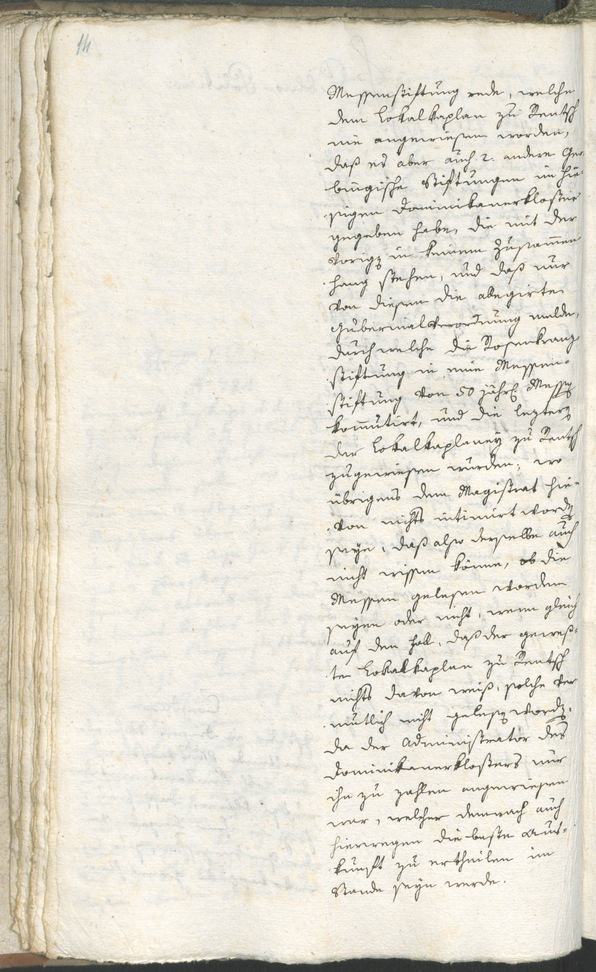 14
Messenstiftung rede, welche
dem Lokalkaplan zu Rentsch
nie angewiesen worden,
daß es aber auch 2. andere Ge-
bingische Stiftungen im hie-
sigen Dominikanerkloster
gegeben habe, die mit der
vorigen in keinem Zusammen
hang stehen, und daß nur
von diesen die allegirte
Gubernialverordnung melde,
durch welche die Rosenkranz
stiftung in eine Messen-
stiftung von 50 jährl. Messen
kommutirt, und die leztere
der Lokalkaplaney zu Rentsch
zugewiesen wurden; wo
übrigens dem Magistrat hie-
von nichts intimirt worden
seye, daß also derselbe auch
nicht wissen könne, ob die
Messen gelesen worden
seyen oder nicht, wenn gleich
auf den Fall, daß der geweß-
te Lokalkaplan zu Rentsch
nichts davon weiß, solche ver
mutlich nicht gelesen worden,
da der Administrator des
Dominikanerklosters nur
ihn zu zahlen angewiesen
war, welcher demnach auch
hierwegen die beste Aus-
kunft zu ertheilen im
Stande seyn werde.